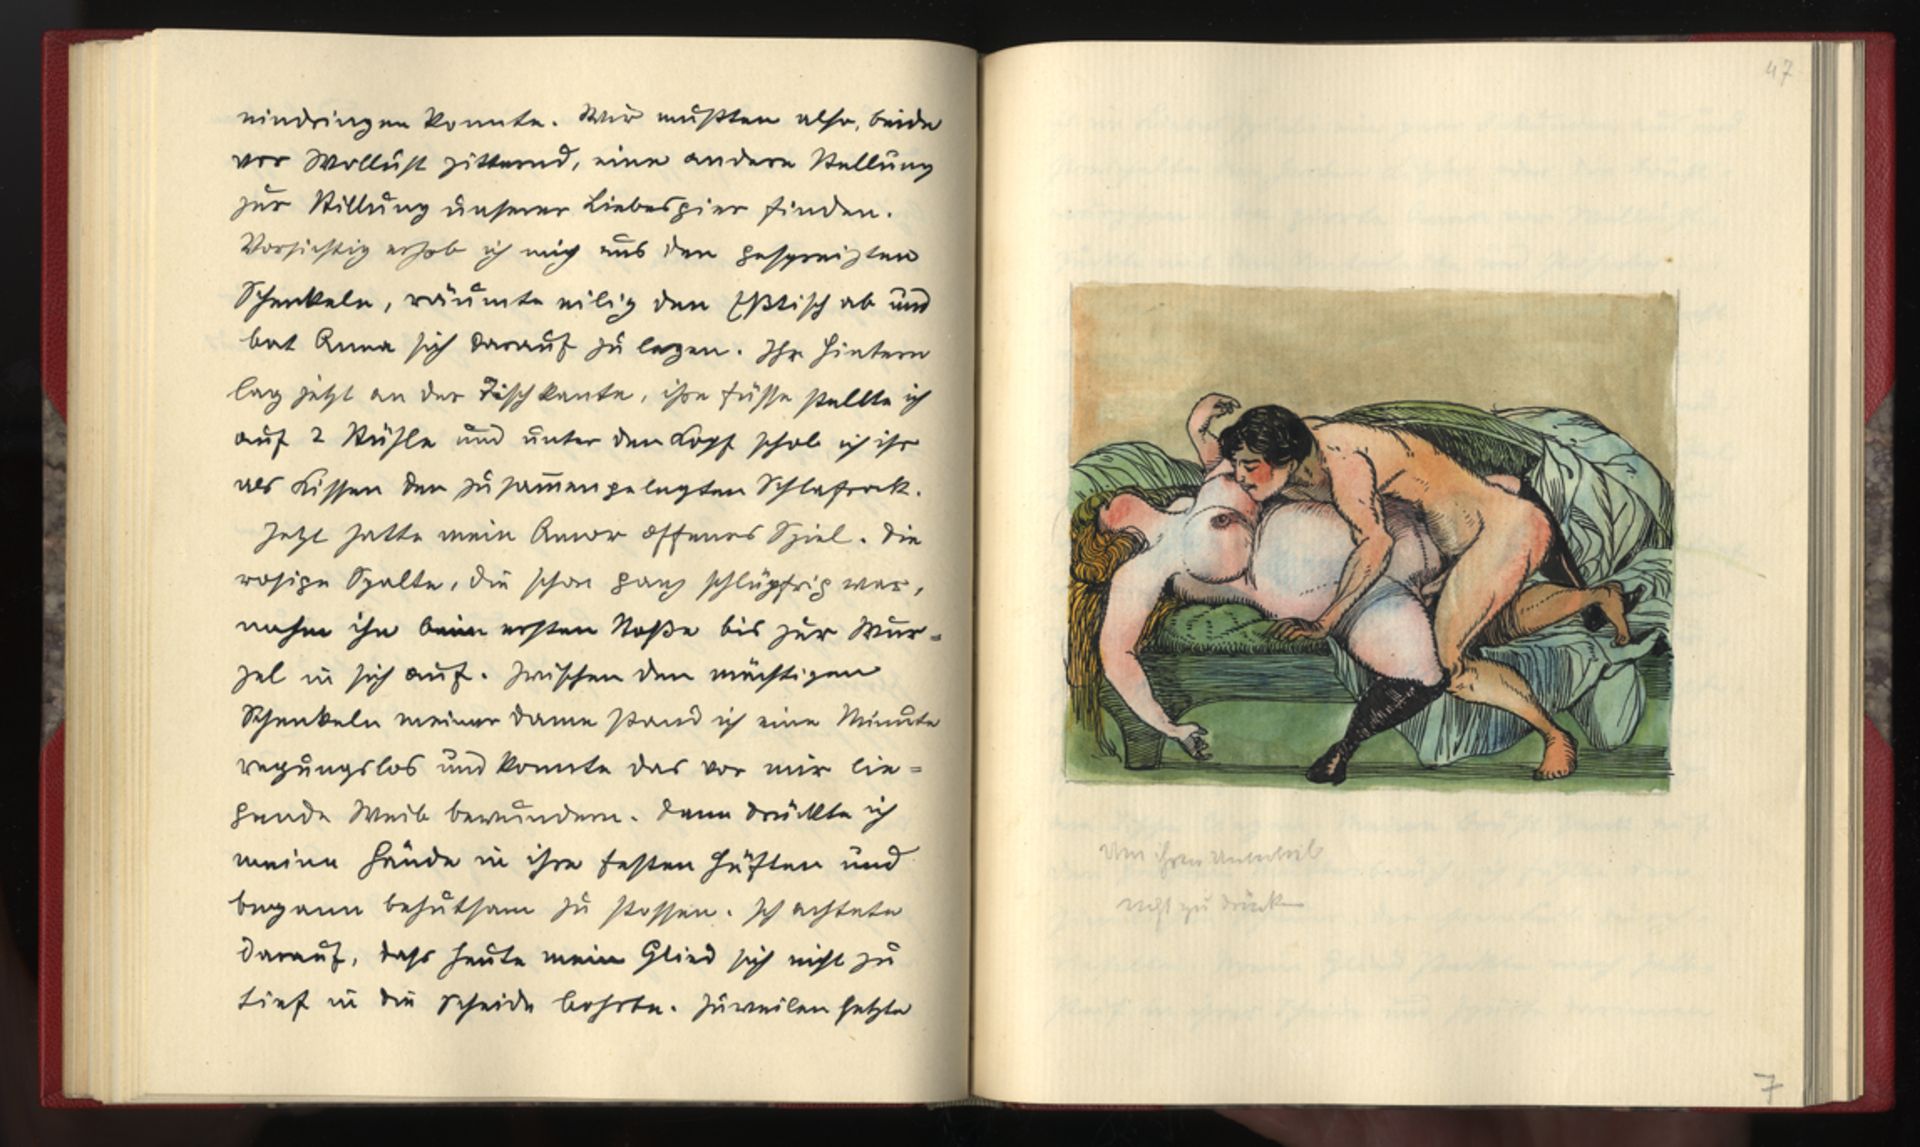 eindringen konnte. Wir mußten also, beide
vor Wollust zitternd, eine andere Stellung
zur Stillung unserer Liebesgier finden.
Vorsichtig erhob ich mich aus den gespreizten
Schenkeln, räumte eilig den Eßtisch ab und
bat Anna sich darauf zu legen. Ihr Hintern
lag jetzt an der Tischkante, ihre Füsse stellte ich
auf 2 Stühle und unter den Kopf schob ich ihr
als Kissen den zusam̅engelegten Schlafrock.
Jetzt hatte mein Amor offenes Spiel. Die
rosige Spalte, die schon ganz schlüpfrig war,
nahm ihn beim ersten Stoße bis zur Wur=
zel in sich auf. Zwischen den mächtigen
Schenkeln meiner Dame stand ich eine Minute
regungslos und konnte das vor mir lie=
gende Weib bewundern. Dann drückte ich
meine Hände in ihre festen Hüften und
begann behutsam zu stossen. Ich achtete
darauf, dass heute mein Glied sich nicht zu
tief in die Scheide bohrte. Zuweilen setzte
47
Um ihren Unterleib
nicht zu drücken
7